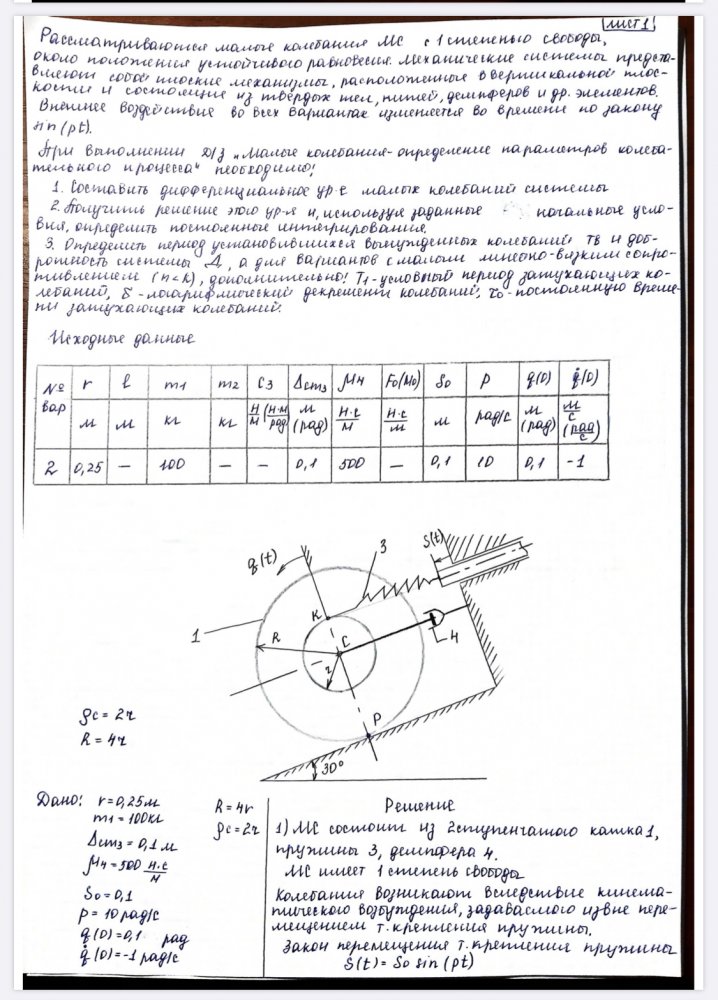 ЛИСТ 1
Рассматриваются малые колебания МС с 1 степенью свободы,
около положения устойчивого равновесия. Механические системы предста-
вляют собой плоские механизмы, расположенные в вертикальной плос-
кости и состоящие из твёрдых тел, нитей, демпферов и др. элементов.
Внешнее воздействие во всех вариантах изменяется во времени по закону
sin(pt).
При выполнении Д/З „Малые колебания-определение параметров колеба-
тельного процесса" необходимо:
1. Составить дифференциальное ур-е малых колебаний системы
2. Получить решение этого ур-я и, используя заданные начальные усло-
вия, определить постоянные интегрирования.
3. Определить период установившихся вынужденных колебаний Tв и доб-
ротность системы Д, а для вариантов с малым линейно-вязким сопро-
тивлением (n<k), дополнительно: T1-условный период затухающих ко-
лебаний, δ-логарифмический декремент колебаний, τ0-постоянную време-
ни затухающих колебаний.
Исходные данные
№ вар r l m1 m2 C3 Δcm3 μ4 F0(M0) S0 P q(0) q̇(0)
м м кг кг Н/м (Н·м/рад) м (рад) Н·с/м Н·с/м м рад/с м (рад) м/с (рад/с)
2 0,25 — 100 — — 0,1 500 — 0,1 10 0,1 -1
q(t)
3
S(t)
K
1
R
C
4
r
P
30°
ρc = 2r
R = 4r
Дано: r = 0,25м
m1 = 100кг
Δcm3 = 0,1 м
μ4 = 500 Н·с/м
S0 = 0,1
p = 10 рад/с
q(0) = 0,1 рад
q̇(0) = -1 рад/с
R = 4r
ρc = 2r
Решение
1) МС состоит из 2ступенчатого катка 1,
пружины 3, демпфера 4.
МС имеет 1 степень свободы
Колебания возникают вследствие кинема-
тического возбуждения, задаваемого извне пере-
мещением т. крепления пружины.
Закон перемещения т. крепления пружины
S(t) = S0 sin(pt)